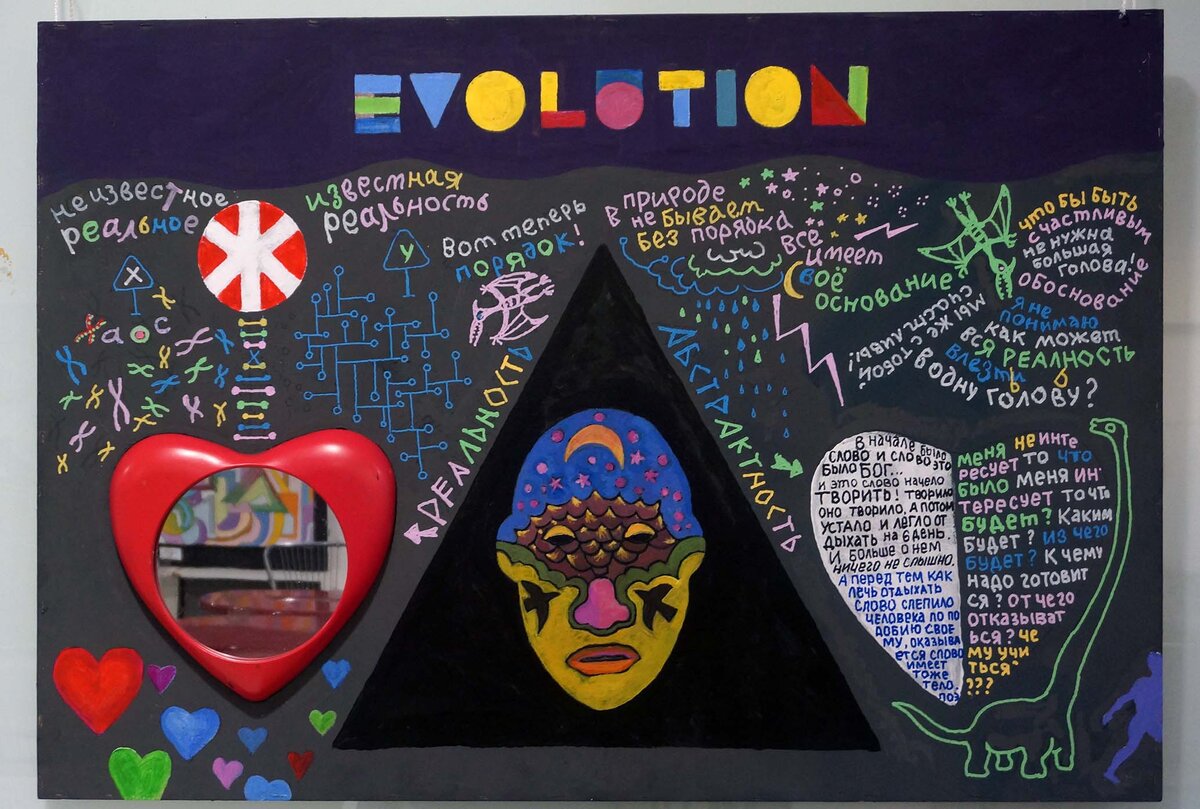 EVOLUTION
неизвестное
реальное
известная
реальность
X
хаос
У
Вот теперь
порядок!
в природе
не бывает
без порядка
всё
имеет
своё
основание
что бы быть
счастливым
не нужна
большая
голова!
обоснование
мы же с тобой
счастливы!
я не
понимаю
как может
вся реалность
влезть
в одну голову?
реальность
абстрактность
в начале было
слово и слово это
было БОГ...
и это слово начело
творить! творило
оно творило, а потом
устало и легло от
дыхать на 6 день.
и больше о нем
ничего не слышно.
а перед тем как
лечь отдыхать
слово слепило
человека по по
добию свое
му, оказыва
ется слово
имеет
тоже
тело.
поэ
меня не инте
ресует то что
было меня ин-
тересует то что
будет? Каким
будет? из чего
будет? к чему
надо готовит
ся? от чего
отказыват
ься? че
му учи
ться?
???